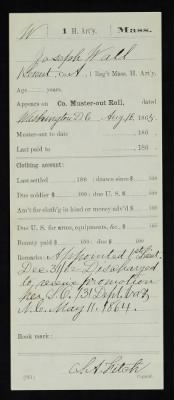 W 1 H. Art'y. Mass.
Joseph Wall
Co. A, 1 Reg't Mass. H. Art'y.
Age years.
Appears on Co. Muster-out Roll, dated
Washington D.C. Aug. 16, 1865.
Muster-out to date 186
Last paid to 186
Clothing account:
Last settled 186 ; drawn since $ 100
Due soldier $ 100 ; due U. S. $ 100
Am't for cloth'g in kind or money adv'd $ 100
Due U. S. for arms, equipments, &c., $ 100
Bounty paid $ 100 ; due $ 100
Remarks: Appointed 1st Lieut.
Dec. 31/ Discharged
to receive promotion
S.O. 131
May 11, 1864.
Book mark:
Copyist.